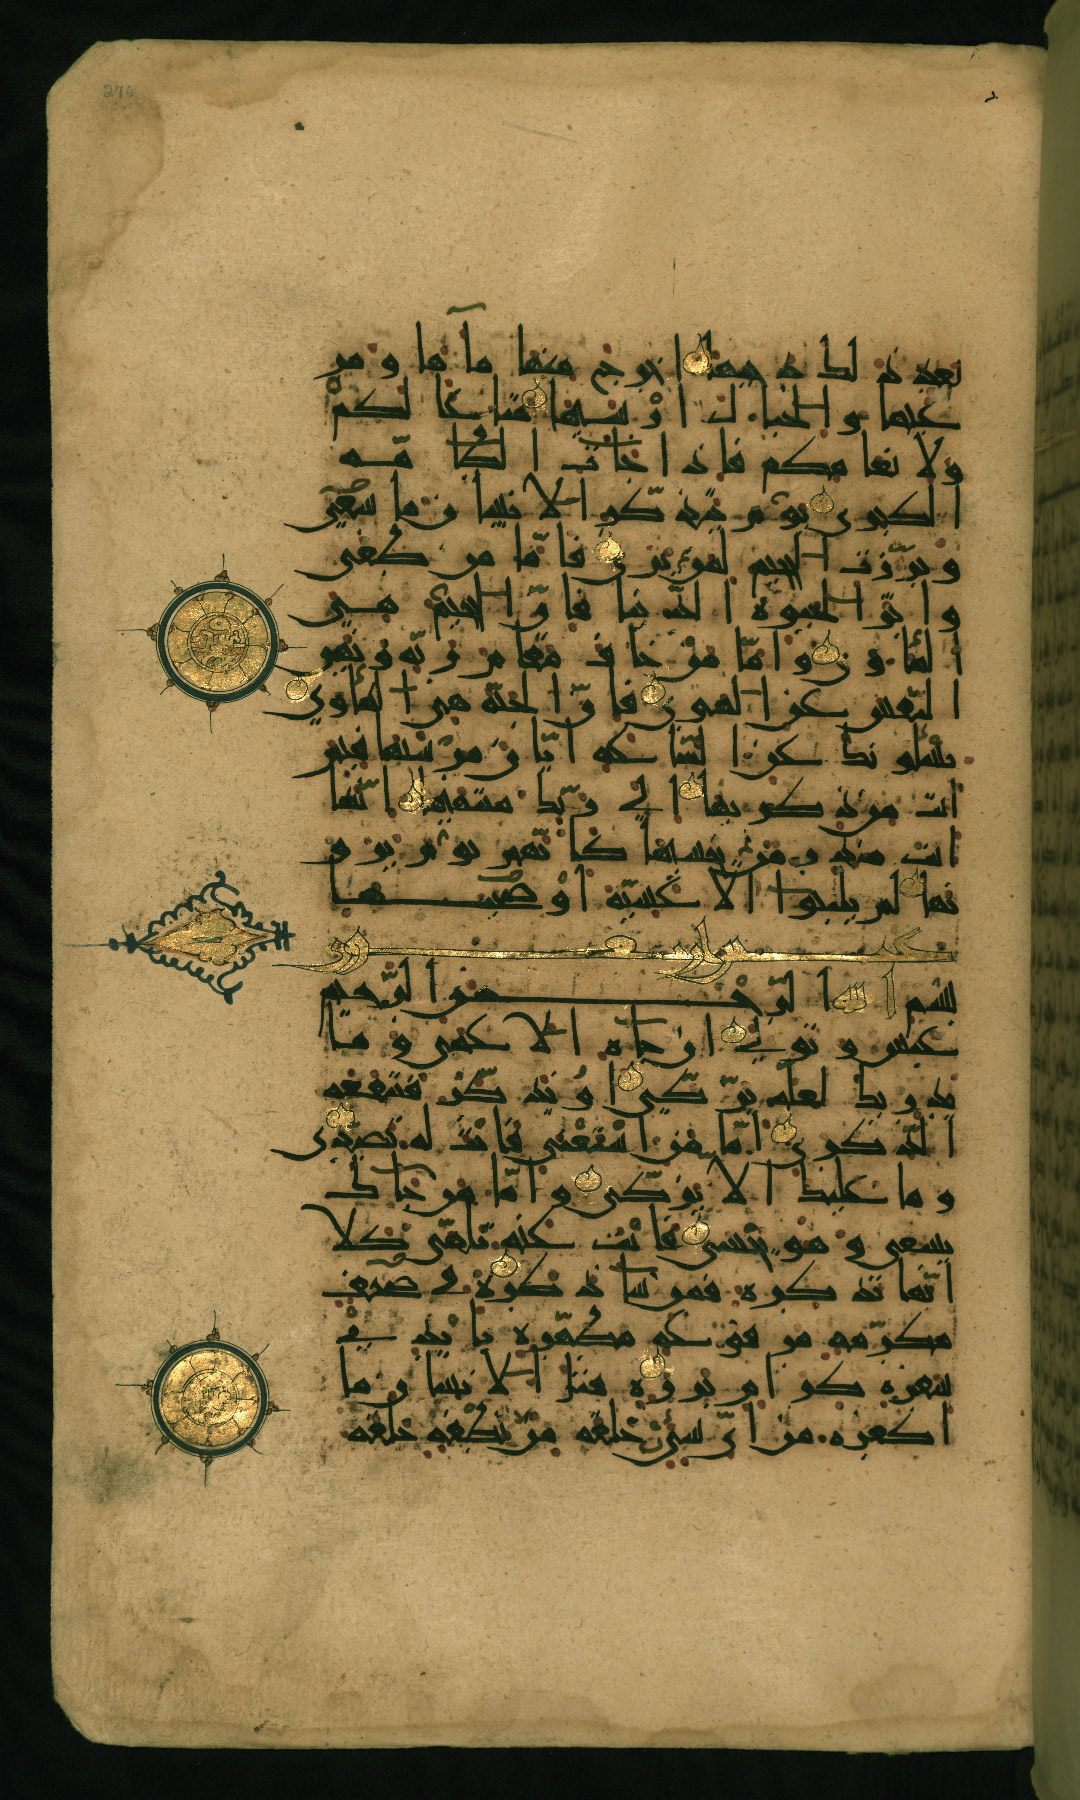 276
بعد ذلك دحيها اخرج منها ماءها ومر
عيها والجبال ارسيها متاعا لكم
ولانعامكم فاذا جاءت الطامة
الكبرى يوم يتذكر الانسان ما سعى
وبرزت الجحيم لمن يرى فاما من طغى
واثر الحيوة الدنيا فان الجحيم هي
المأوى واما من خاف مقام ربه ونهى
النفس عن الهوى فان الجنة هي المأوى
يسئلونك عن الساعة ايان مرسيها فيم
انت من ذكريها الى ربك منتهيها انما
انت منذر من يخشيها كانهم يوم يرو
نها لم يلبثوا الا عشية او ضحيها
بسم الله الرحمن الرحيم
عبس وتولى ان جاءه الاعمى وما
يدريك لعله يزكى او يذكر فتنفعه
الذكرى اما من استغنى فانت له تصدى
وما عليك الا يزكى واما من جاءك
يسعى وهو يخشى فانت عنه تلهى كلا
انها تذكرة فمن شاء ذكره في صحف
مكرمة مرفوعة مطهرة بايدي
سفرة كرام بررة قتل الانسان ما
اكفره من اي شيء خلقه من نطفة خلقه